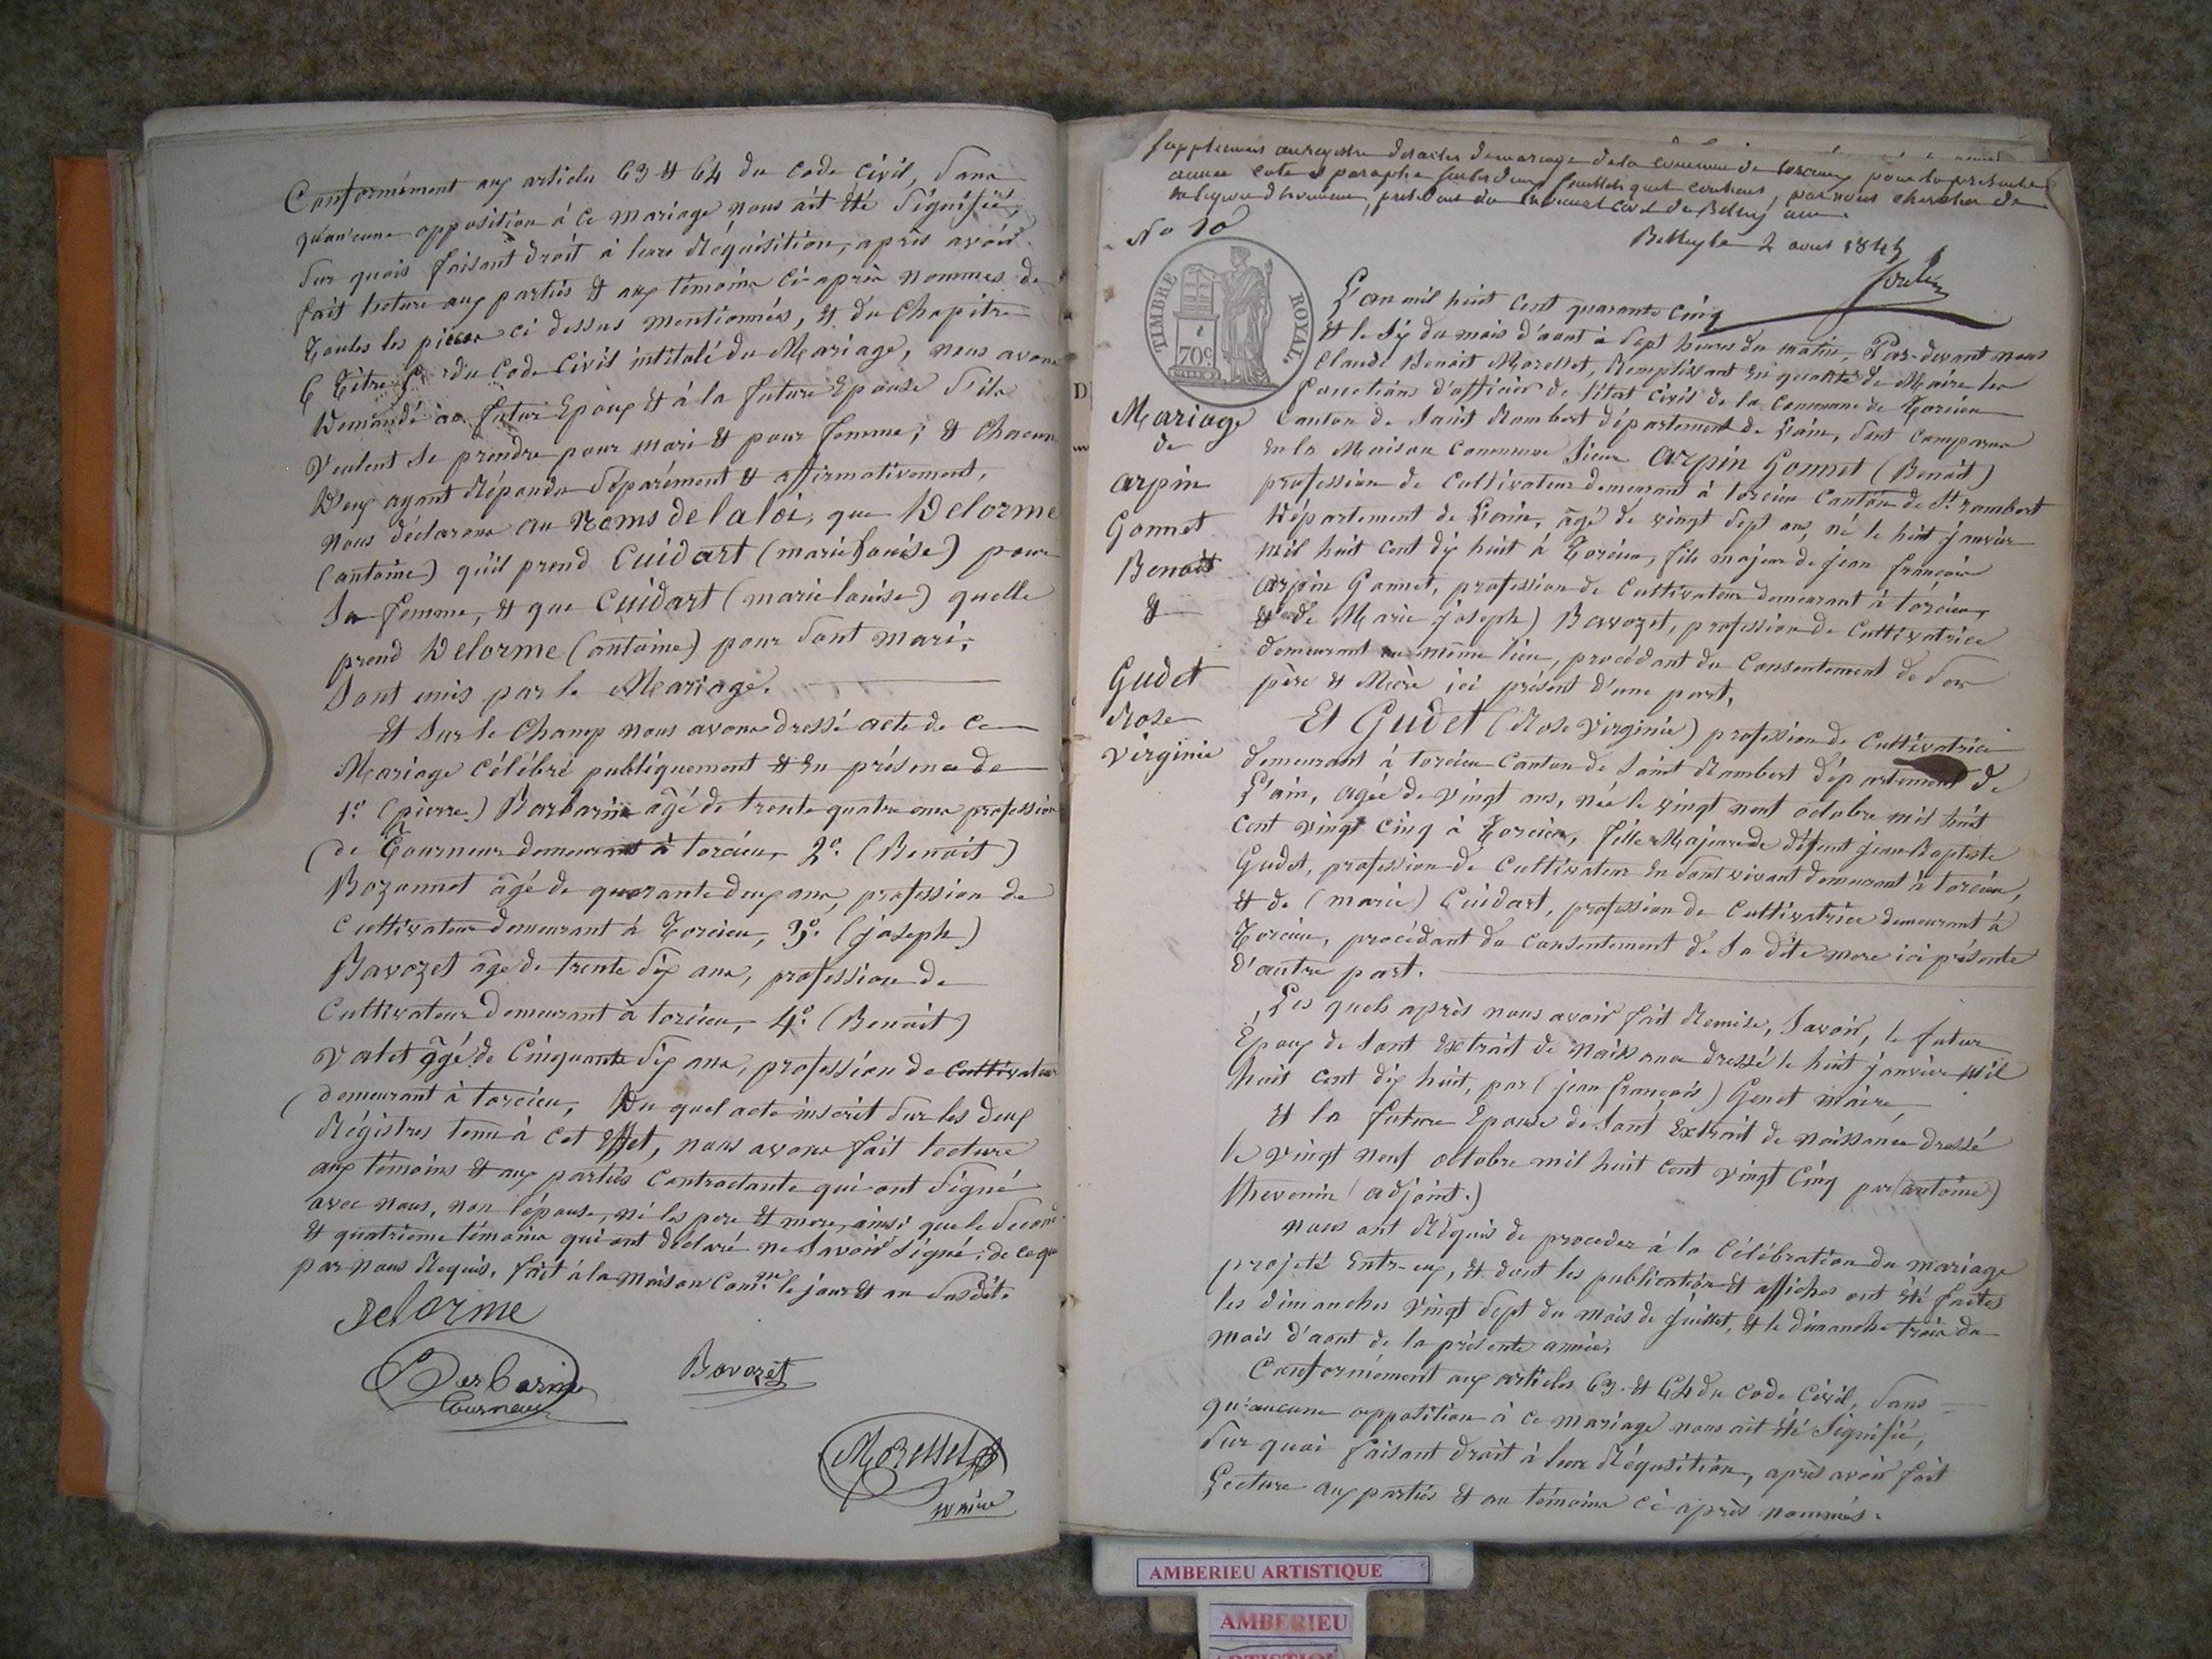 Conformément aux articles 63 et 64 du code civil, sans
qu'aucune opposition à ce mariage nous ait été signifiée,
sur quois faisant droit à leurs Réquisition, après avoir
fait lecture aux partiés et aux témoins ci-après nommés de
Toutes les pieces ci dessus mentionnés, et du Chapitre
6 Titre du Code Civil intitulé du Mariage, nous avons
Demandé au futur Epoux et à la future Epouse s'ils
Veulent se prendre pour mari et pour femme; et chacun
D'eux ayant Répondu séparément et affirmativement,
nous déclarons au Noms de la loi, que Delorme
(antoine) qu'il prend Cuidart (marie louise) pour
sa femme, et que Cuidart (marie louise) quelle
prend Delorme (antoine) pour sont mari;
Sont unis par le Mariage.
Et sur le Champ nous avons dressé acte de ce
Mariage célébré publiquement et en présence de
1º. (pierre) Barbarin âgé de trente quatre ans profession
de Tourneur demeurant à torcieu, 2º. (Benoit)
Bozonnet âgé de quarante deux ans, profession de
Cultivateur demeurant à Torcieu, 3º. (joseph)
Bavozet âgé de trente six ans, profession de
Cultivateur demeurant à torcieu, 4º. (Benoit)
Valet âgé de Cinquante six ans, profession de Cultivateur
demeurant à torcieu, Du quel acte inscrit sur les deux
Régistres tenu à cet Effet, nous avons fait lecture
aux témoins et aux partiés Contractante qui ont signé
avec nous, non l'épouse, ni les pere et mere, ainsi que le second
et quatrieme témoins qui ont déclaré ne savoir signé; de ce que
par nous Requis. fait à la maison Comne. le jour et an susdit.
Delorme
Barbarin
tourneur
Bavozet
Morellet
maire
supplement au registre des actes de mariage de la commune de torcieu pour la presente
année coté et paraphé
Belley le 2 aout 1845
No 10
TIMBRE ROYAL.
70c
L'an mil huit cent quarante cinq
et le six du mois d'aout à sept heures du matin, Par-devant nous
Claude Benoit Morellet, Remplissant en qualité de Maire les
fonctions d'officier de l'état civil de la commune de Torcieu
Canton de Saint Rambert département de L'ain, sont comparus
en la Maison Commune Sieur Arpin Gonnet (Benoit)
profession de Cultivateur demeurant à torcieu Canton de St. rambert
Département de L'ain, âgé de vingt sept ans, né le huit janvier
mil huit cent dix huit à Torcieu, fils majeur de jean françois
arpin Gonnet, profession de Cultivateur demeurant à torcieu,
et de Marie joseph) Bavozet, profession de Cultivatrice
demeurant au même lieu, procédant du Consentement de son
père et Mère ici présent d'une part,
Mariage
de
Arpin
Gonnet
Benoit
&
Gudet
Rose
Virginie
Et Gudet (Rose Virginie) profession de Cultivatrice
demeurant à torcieu Canton de Saint Rambert département de
L'ain, agée de vingt ans, née le vingt neuf octobre mil huit
cent vingt cinq à Torcieu, fille Majeure de défunt jean Baptiste
Gudet, profession de Cultivateur en sont vivant demeurant à torcieu,
et de (marie) Cuidart, profession de Cultivatrice demeurant à
Torcieu, procédant du Consentement de sa dite mere ici présente
d'autre part.
Les quels après nous avoir fait Remise, Savoir, le futur
Epoux de sont Extrait de naissance dressé le huit janvier mil
huit cent dix huit, par (jean françois) Genet maire,
et la future Epouse de sont Extrait de naissance dressé
le vingt neuf octobre mil huit cent vingt cinq par (antoine)
thevenin (adjoint.)
nous ont Réquis de proceder à la Célébration du mariage
projeté Entr-eux, et dont les publication et affiches ont été faites
les dimanches vingt sept du mois de juillet, et le dimanche trois du
mois d'aout de la présente année,
Conformément aux articles 63. et 64 du code Civil, sans
qu'aucune opposition à ce mariage nous ait été signifié,
sur quoi faisant droit à leur Réquisition, après avoir fait
Lecture aux partiés et au témoins ci-après nommés.
AMBERIEU ARTISTIQUE
AMBERIEU
ARTISTIQUE